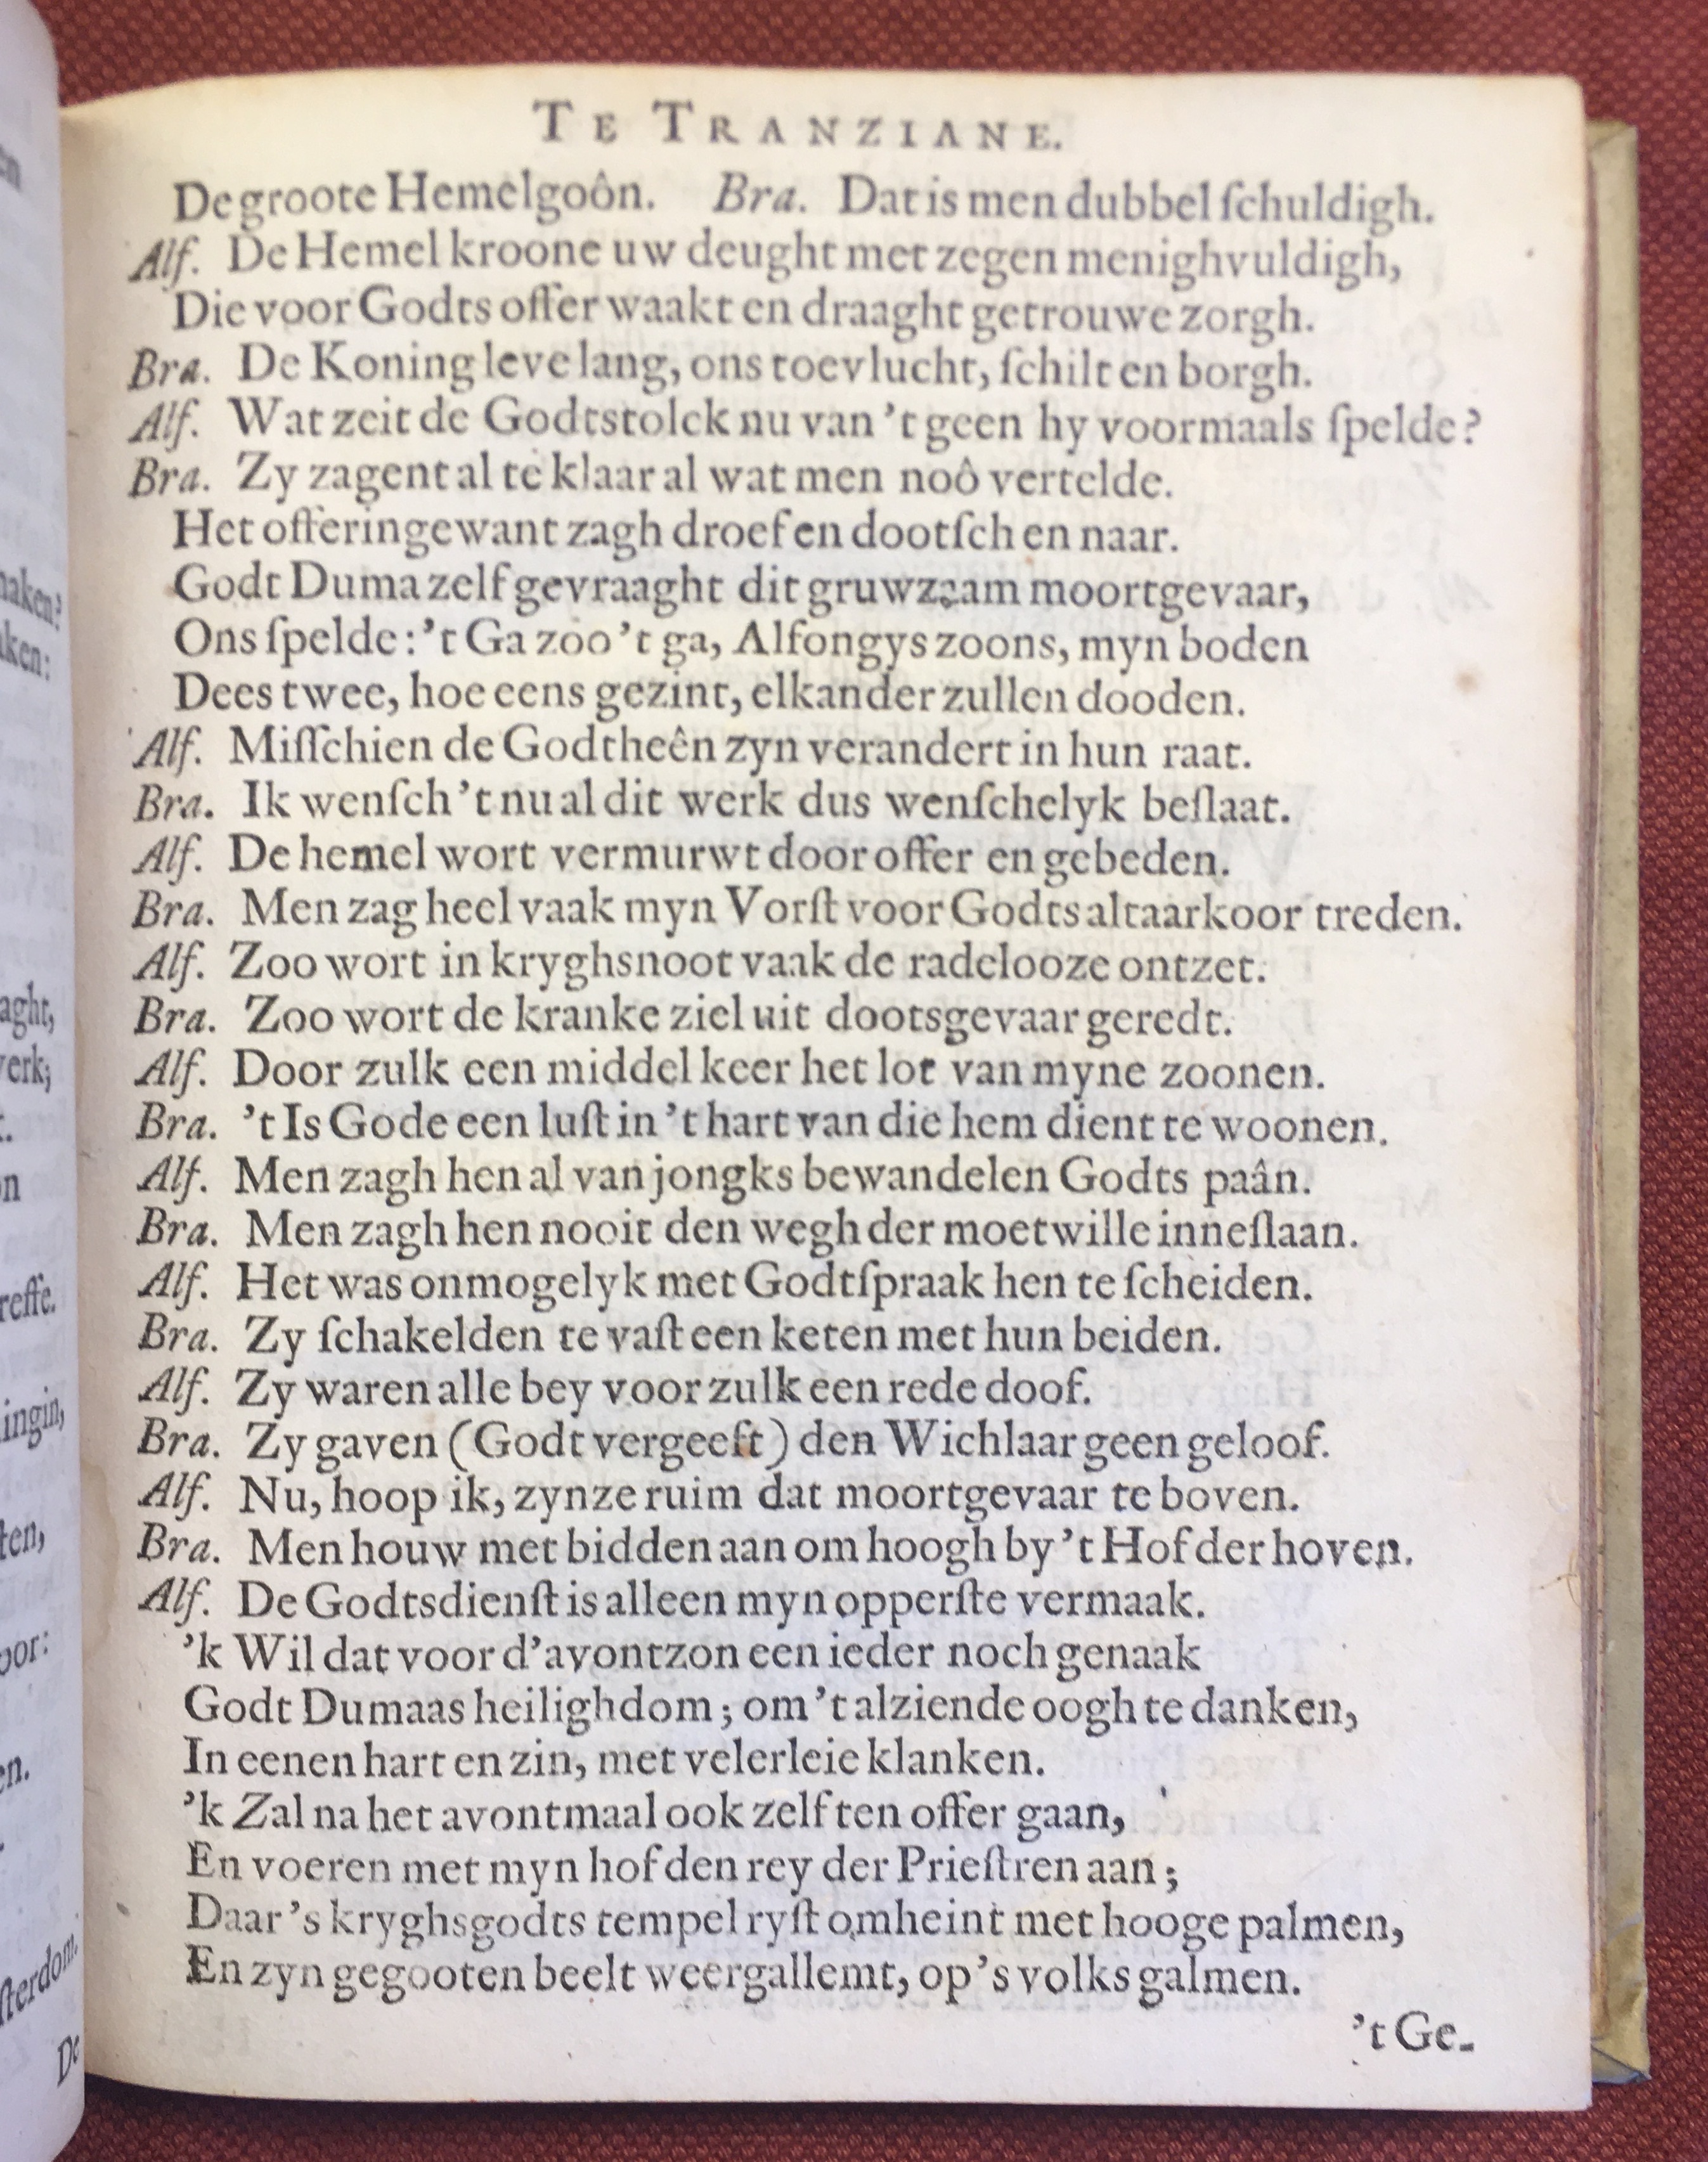 TE TRANZIANE.
De groote Hemelgoôn. Bra. Dat is men dubbel ſchuldigh.
Alf. De Hemel kroone uw deught met zegen menighvuldigh,
Die voor Godts offer waakt en draaght getrouwe zorgh.
Bra. De Koning leve lang, ons toevlucht, ſchilt en borgh.
Alf. Wat zeit de Godtstolck nu van 't geen hy voormaals ſpelde?
Bra. Zy zagent al te klaar al wat men noô vertelde.
Het offeringewant zagh droef en dootſch en naar.
Godt Duma zelf gevraaght dit gruwzaam moortgevaar,
Ons ſpelde: 't Ga zoo 't ga, Alfongys zoons, myn boden
Dees twee, hoe eens gezint, elkander zullen dooden.
Alf. Miſſchien de Godtheên zyn verandert in hun raat.
Bra. Ik wenſch 't nu al dit werk dus wenſchelyk beſlaat.
Alf. De hemel wort vermurwt door offer en gebeden.
Bra. Men zag heel vaak myn Vorſt voor Godts altaarkoor treden.
Alf. Zoo wort in kryghsnoot vaak de radelooze ontzet.
Bra. Zoo wort de kranke ziel uit dootsgevaar geredt.
Alf. Door zulk een middel keer het lot van myne zoonen.
Bra. 't Is Gode een luſt in 't hart van die hem dient te woonen.
Alf. Men zagh hen al van jongks bewandelen Godts paân.
Bra. Men zagh hen nooit den wegh der moetwille inneſlaan.
Alf. Het was onmogelyk met Godtſpraak hen te ſcheiden.
Bra. Zy ſchakelden te vaſt een keten met hun beiden.
Alf. Zy waren alle bey voor zulk een rede doof.
Bra. Zy gaven (Godt vergeeft) den Wichlaar geen geloof.
Alf. Nu, hoop ik, zynze ruim dat moortgevaar te boven.
Bra. Men houw met bidden aan om hoogh by 't Hof der hoven.
Alf. De Godtsdienſt is alleen myn opperſte vermaak.
'k Wil dat voor d'avontzon een ieder noch genaak
Godt Dumaas heilighdom; om 't alziende oogh te danken,
In eenen hart en zin, met velerleie klanken.
'k Zal na het avontmaal ook zelf ten offer gaan,
En voeren met myn hof den rey der Prieſtren aan;
Daar 's kryghsgodts tempel ryſt omheint met hooge palmen,
En zyn gegooten beelt weergallemt, op 's volks galmen.
't Ge-